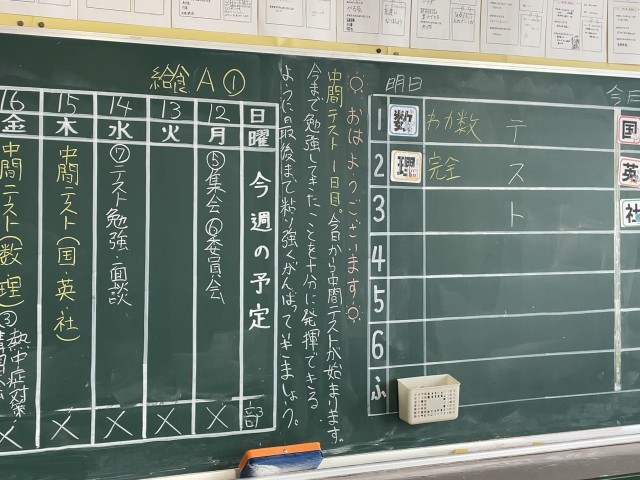 給食A①
日 曜 今週の予定 部
12 月 ⑤集会⑥委員会 ×
13 火 ×
14 水 ⑦テスト勉強・面談 ×
15 木 中間テスト(国・英・社) ×
16 金 中間テスト(数・理)③熱中症対策 ×
おはようございます
中間テスト1日目。今日から中間テストが始まります。
今まで勉強してきたことを十分に発揮できる
ように最後まで粘り強くがんばって
明日
1 数 わか数 テ
2 理 完全 ス
3 ト
4
5
6
ふ
今日
国
英
社